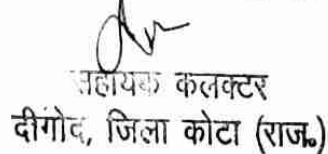 सहायक कलक्टर
दीगोद, जिला कोटा (राज०)